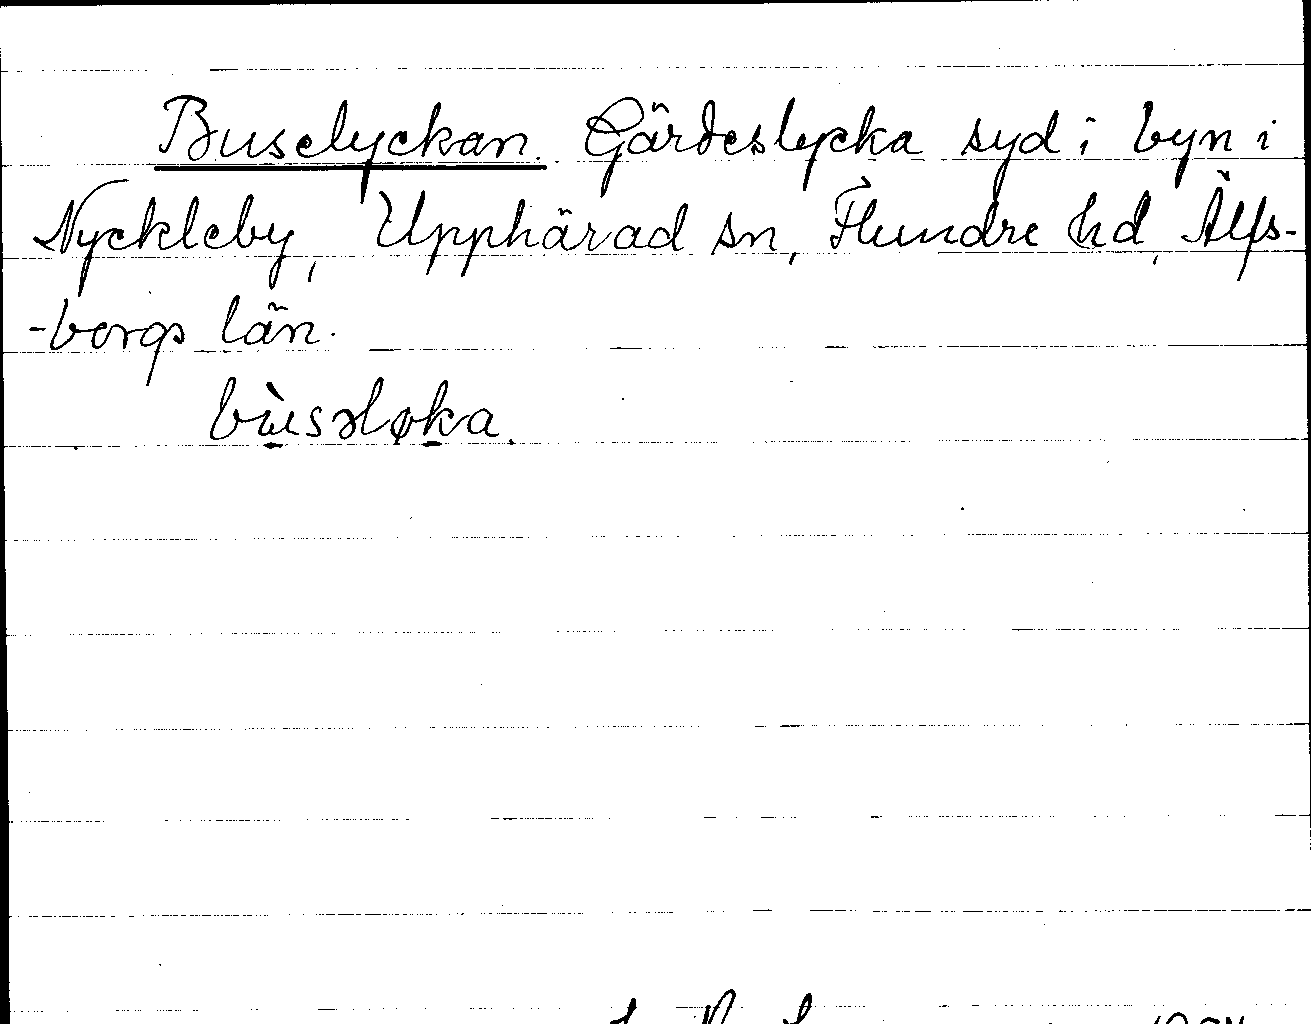 Buselyckan. Gärdeslycka syd i byn i
Nyckleby, Upphärad sn, Flundre hd, Älfs-
-borgs län.
bùsəløka.